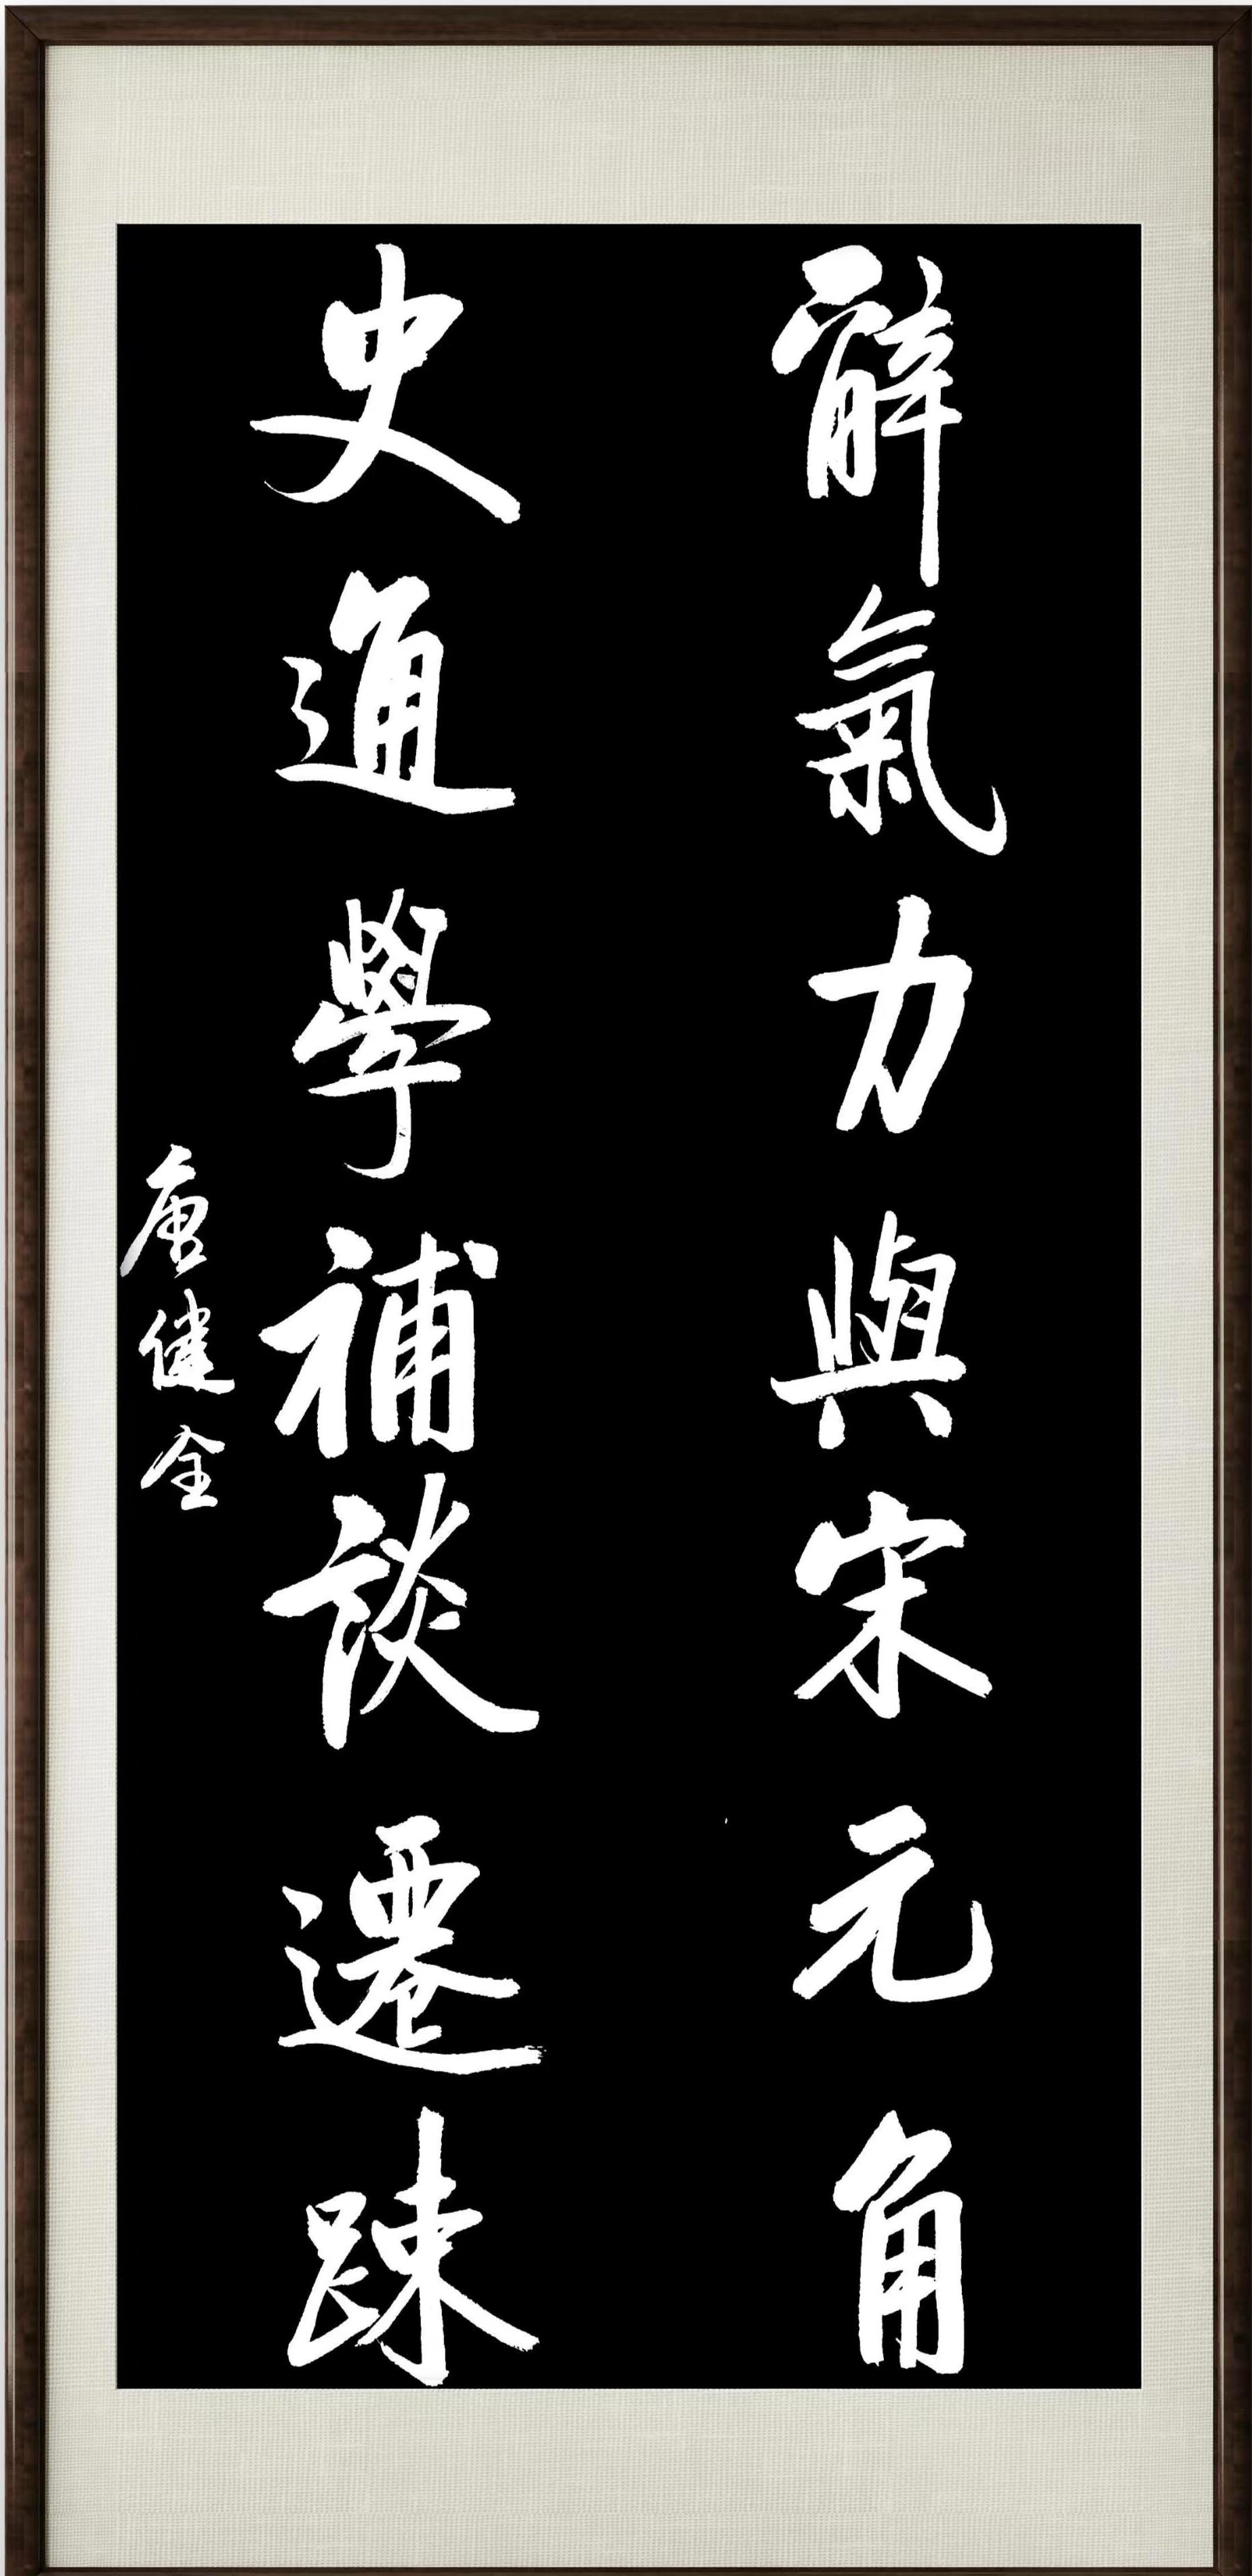 辭氣力與宋元角
史通學補談遷踈
唐健全